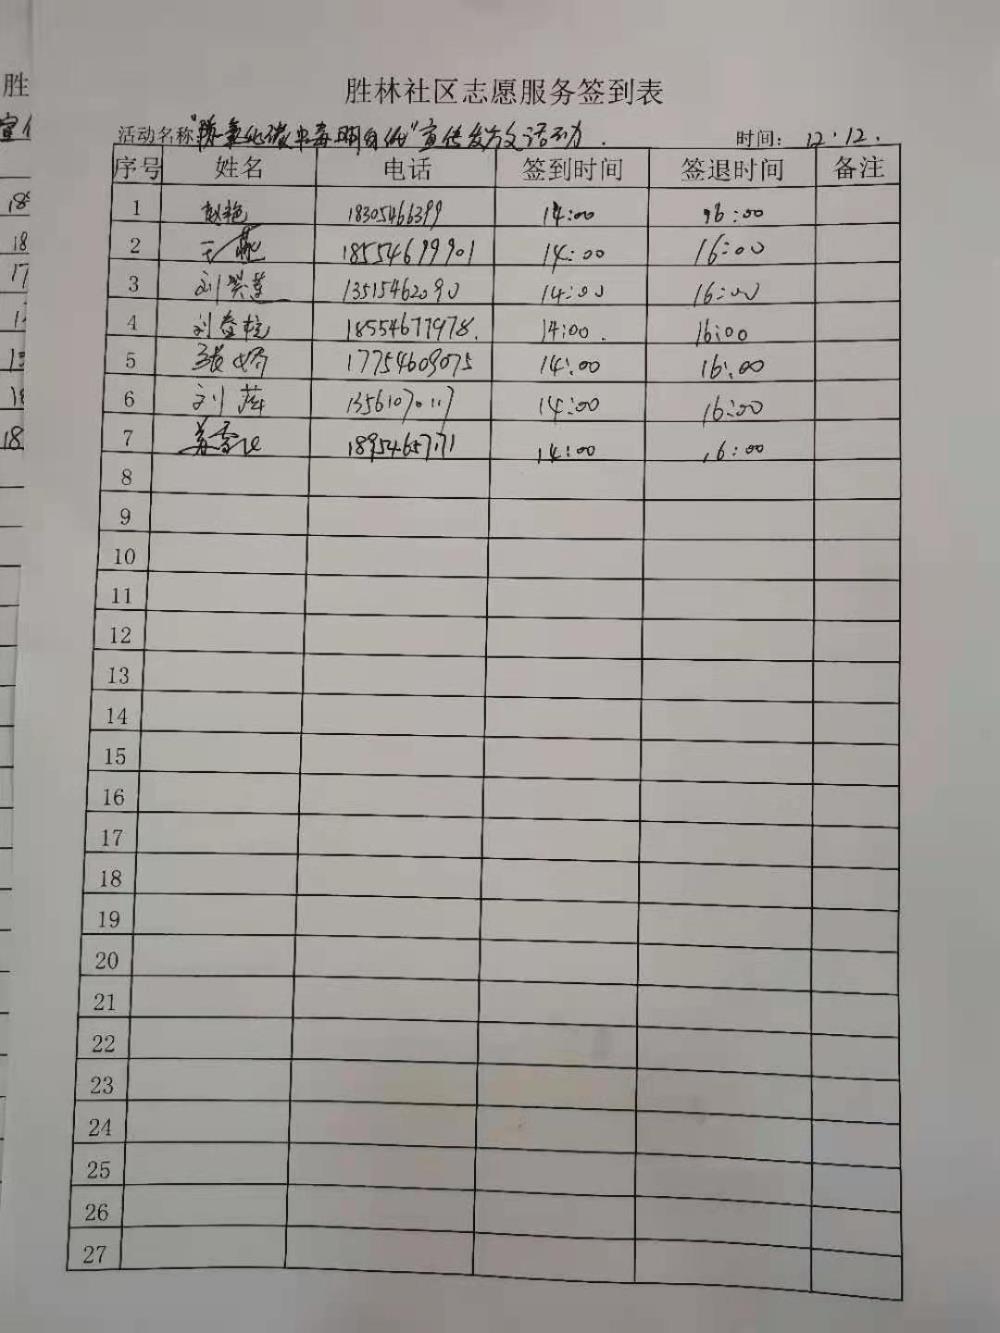 胜林社区志愿服务签到表
活动名称 氧化碳中毒明白纸"宣传发放活动. 时间: 12.12.
序号 姓名 电话 签到时间 签退时间 备注
1 赵艳 18305466399 14:00 16:00
2 王燕 18554699901 14:00 16:00
3 刘 13515462090 14:00 16:00
4 刘 18554677978. 14:00. 16:00
5 张娇 17754609075 14:00 16:00
6 刘萍 13561070117 14:00 16:00
7 18954657171 14:00 16:00
8
9
10
11
12
13
14
15
16
17
18
19
20
21
22
23
24
25
26
27